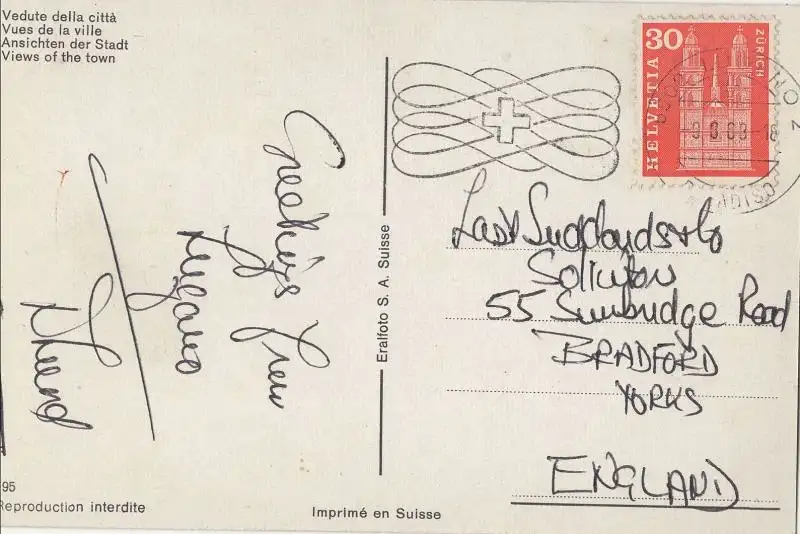 Vedute della città
Vues de la ville
Ansichten der Stadt
Views of the town
HELVETIA
30
ZÜRICH
Greetings from
Lugano
Eralfoto S. A. Suisse
& Co
Solicitors
55 Sunbridge Road
BRADFORD
YORKS
ENGLAND
95
Reproduction interdite
Imprimé en Suisse